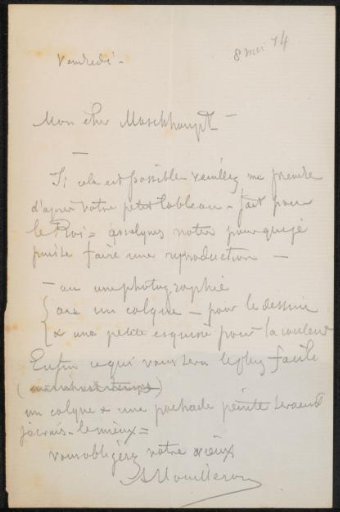 Vendredi -
8 mai 74
Mon cher Maschhaupt -
Si cela est possible veuillez me
d'après votre petit tableau - fait pour
le Roi = notes pour que je
puisse faire une reproduction -
- ou une photographie
un calque - pour le dessin
& une petite esquisse pour la couleur
Enfin ce qui vous sera le plus facile
un calque & une pochade peinte seraient
je crois - le mieux =
vous obligerez votre vieux
A Mouilleron